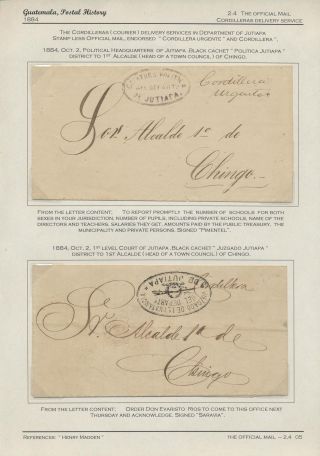 Guatemala, Postal History
1884
2-4 The official Mail
Cordilleras delivery service
The Cordilleras (courier) delivery services in Department of Jutiapa
Stamp less Official mail, endorsed "Cordillera urgente" and Cordillera".
1884, Oct. 2, Political Headquarters of Jutiapa. Black cachet "Politica Jutiapa"
district to 1st Alcalde (head of a town council) of Chingo.
JUTIAPA
Cordillera
Urgente
Sor. Alcalde 1o. de
Chingo.
From the letter content; To report promptly the number of schools for both
sexes in your jurisdiction, number of pupils, including private schools, name of
the directors and teachers, salaries they get, amounts paid by the public treasury, the
municipality and private persons. Signed "Pimentel".
1884, Oct. 2, 1st level Court of Jutiapa. Black cachet "Juzgado Jutiapa"
district to 1st Alcalde (head of a town council) of Chingo.
DE JUTIAPA
Cordillera
Sr. Alcalde 1o. de
Chingo
From the letter content; Order Don Evaristo Rios to come to this office next
Thursday and acknowledge. Signed "Saravia".
References: "Henry Madden"
the official mail – 2.4 05